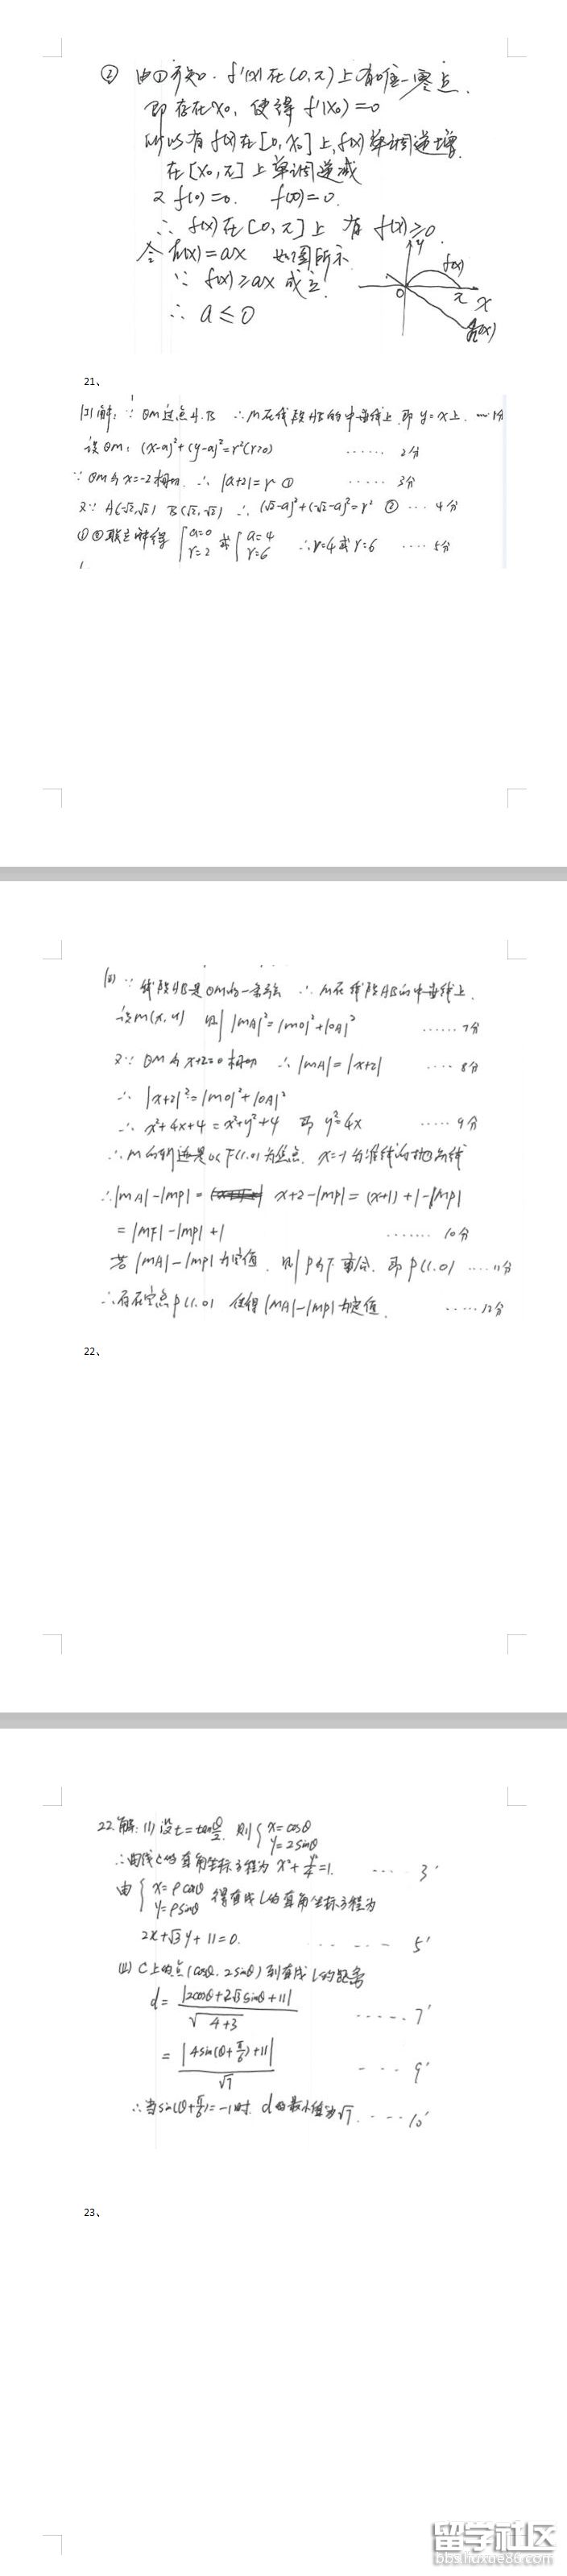 ② 由①可知. f'(x)在(0,π)上有唯一零点.
即存在x₀, 使得 f'(x₀)=0
所以有f(x)在[0,x₀]上,f(x)单调递增.
在[x₀,π]上单调递减
又 f(0)=0. f(π)=0.
∴ f(x)在[0,π]上 有 f(x)≥0.
令h(x)=ax 如图所示
∵ f(x)≥ax 成立!
∴ a≤0
y
f(x)
0 π x
h(x)
21、
解: ∵ ⊙M过点A.B ∴M在线段AB的中垂线上,即 y=x上. ···1分
设⊙M: (x-a)²+(y-a)²=r²(r>0) ······ 2分
∵ ⊙M与x=-2相切. ∴ |a+2|=r ① ······ 3分
又∵ A(-√2,√2) B(√2,-√2) ∴ (√2-a)²+(-√2-a)²=r² ② ··· 4分
①②联立解得 { a=0 r=2 或 { a=4 r=6 ∴r=4或r=6 ···· 5分
∵ 线段AB是⊙M的一条弦 ∴ M在线段AB的中垂线上.
设M(x,y) 则 |MA|²=|MO|²+|OA|² ······ 7分
又∵ ⊙M与x+2=0相切 ∴|MA|=|x+2| ···· 8分
∴ |x+2|²=|MO|²+|OA|²
∴ x²+4x+4=x²+y²+4 即 y²=4x ····· 9分
∴M的轨迹是以F(1.0)为焦点. x=-1为准线的抛物线
∴|MA|-|MP|= x+2-|MP|=(x+1)+1-|MP|
=|MF|-|MP|+1 ······· 10分
若|MA|-|MP|为定值, 则P与F重合. 即P(1.0) ····11分
∴存在定点P(1.0) 使得|MA|-|MP|为定值. ·····12分
22、
22.解: (1)设t=tanθ/2. 则{ x=cosθ y=2sinθ
∴曲线C的直角坐标方程为 x²+y²/4=1. ···· 3'
由{ x=ρcosθ y=ρsinθ 得直线l的直角坐标方程为
2x+√3y+11=0. ······· 5'
(Ⅱ) C上的点(cosθ.2sinθ)到直线l的距离
d= |2cosθ+2√3sinθ+11| / √4+3 ·····7'
= |4sin(θ+π/6)+11| / √7 ···· 9'
∴当sin(θ+π/6)=-1时. d的最小值为√7. ····10'
23、
留学社区
bbs.liuxue86.com